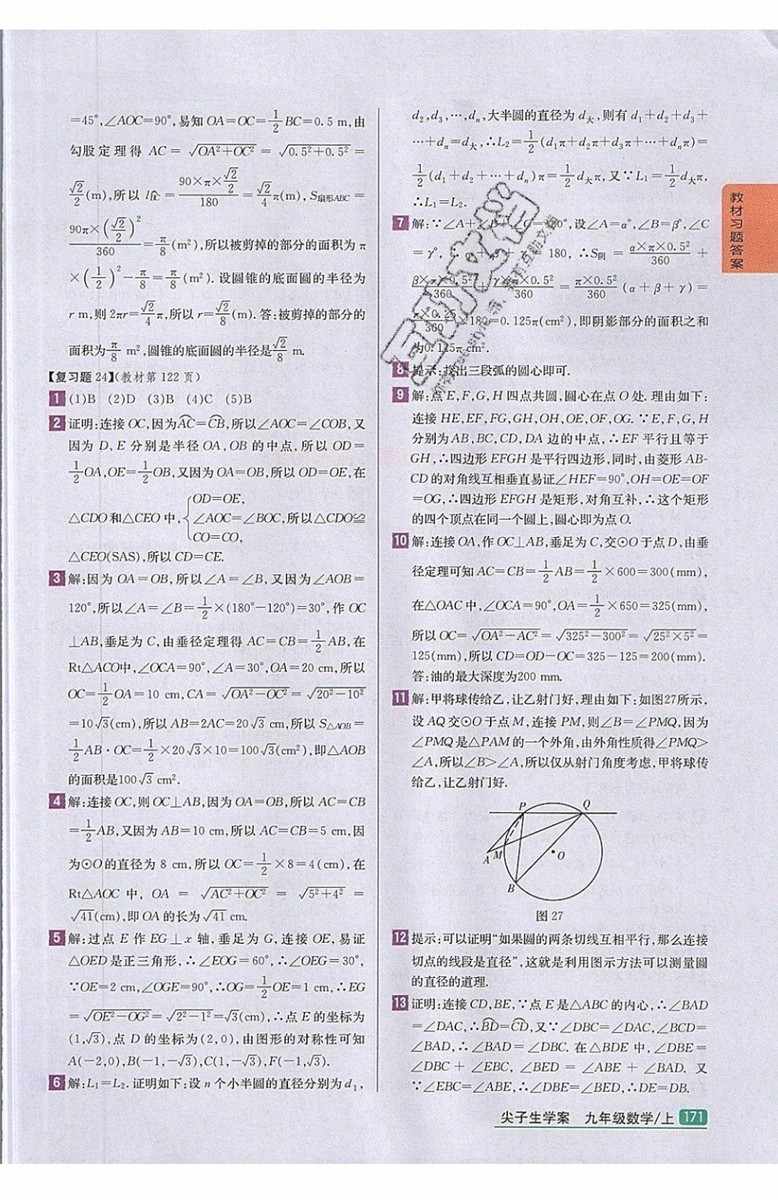 =45°,∠AOC=90°,易知OA=OC=1/2BC=0.5 m,由
勾股定理得 AC=√(OA²+OC²)=√(0.5²+0.5²)=
√2/2(m),所以l⌒BC=(90×π×√2/2)/180=√2/4π(m),S扇形ABC=
90π×(√2/2)²/360=π/8(m²),所以被剪掉的部分的面积为π
×(√2/2)²-π/8=π/8(m²).设圆锥的底面圆的半径为
r m,则2πr=√2/4π,所以r=√2/8(m).答:被剪掉的部分的
面积为π/8 m²,圆锥的底面圆的半径是√2/8 m.
【复习题24】(教材第122页)
1 (1)B (2)D (3)B (4)C (5)B
2 证明:连接OC,因为⌒AC=⌒CB,所以∠AOC=∠COB,又
因为D,E分别是半径OA,OB的中点,所以OD=
1/2OA,OE=1/2OB,又因为OA=OB,所以OD=OE,在
△CDO和△CEO中,{OD=OE,
∠AOC=∠BOC,所以△CDO≌
CO=CO,
△CEO(SAS),所以CD=CE.
3 解:因为OA=OB,所以∠A=∠B,又因为∠AOB=
120°,所以∠A=∠B=1/2×(180°-120°)=30°,作OC
⊥AB,垂足为C,由垂径定理得AC=CB=1/2AB,在
Rt△ACO中,∠OCA=90°,∠A=30°,OA=20 cm,所以
OC=1/2OA=10 cm,CA=√(OA²-OC²)=√(20²-10²)
=10√3(cm),所以AB=2AC=20√3 cm,所以S△AOB=
1/2AB·OC=1/2×20√3×10=100√3(cm²),即△AOB
的面积是100√3 cm².
4 解:连接OC,则OC⊥AB,因为OA=OB,所以AC=CB
=1/2AB,又因为AB=10 cm,所以AC=CB=5 cm,因
为⊙O的直径为8 cm,所以OC=1/2×8=4(cm),在
Rt△AOC中,OA=√(AC²+OC²)=√(5²+4²)=
√41(cm),即OA的长为√41 cm.
5 解:过点E作EG⊥x轴,垂足为G,连接OE,易证
△OED是正三角形,∴∠EOG=60°,∴∠OEG=30°,
∵OE=2 cm,∠OGE=90°,∴OG=1/2OE=1 cm,∴EG
=√(OE²-OG²)=√(2²-1²)=√3(cm),∴点E的坐标为
(1,√3),点D的坐标为(2,0),由图形的对称性可知
A(-2,0),B(-1,-√3),C(1,-√3),F(-1,√3).
6 解:L₁=L₂.证明如下:设n个小半圆的直径分别为d₁,
d₂,d₃,…,dₙ,大半圆的直径为d大,则有d₁+d₂+d₃+
…+dₙ=d大,∴L₂=1/2(d₁π+d₂π+d₃π+…+dₙπ)=
1/2(d₁+d₂+…+dₙ)π=1/2d大π,又∵L₁=1/2d大π,
∴L₁=L₂.
7 解:∵∠A+∠B+∠C=180°,设∠A=α°,∠B=β°,∠C
=γ°, 180,∴S阴=α×π×0.5²/360+
β×π×0.5²/360 ×0.5²/360=π×0.5²/360(α+β+γ)=
π×0.25/360×180=0.125π(cm²),即阴影部分的面积之和
为0.125π cm².
8 提示:找出三段弧的圆心即可.
9 解:点E,F,G,H四点共圆,圆心在点O处.理由如下:
连接HE,EF,FG,GH,OH,OE,OF,OG.∵E,F,G,H
分别为AB,BC,CD,DA边的中点,∴EF平行且等于
GH,∴四边形EFGH是平行四边形,同时,由菱形AB-
CD的对角线互相垂直易证∠HEF=90°,OH=OE=OF
=OG,∴四边形EFGH是矩形,对角互补,∴这个矩形
的四个顶点在同一个圆上,圆心即为点O.
10 解:连接OA,作OC⊥AB,垂足为C,交⊙O于点D,由垂
径定理可知AC=CB=1/2AB=1/2×600=300(mm),
在△OAC中,∠OCA=90°,OA=1/2×650=325(mm),
所以OC=√(OA²-AC²)=√(325²-300²)=√(25²×5²)=
125(mm),所以CD=OD-OC=325-125=200(mm).
答:油的最大深度为200 mm.
11 解:甲将球传给乙,让乙射门好,理由如下:如图27所示,
设AQ交⊙O于点M,连接PM,则∠B=∠PMQ,因为
∠PMQ是△PAM的一个外角,由外角性质得∠PMQ>
∠A,所以∠B>∠A,所以仅从射门角度考虑,甲将球传
给乙,让乙射门好.
P
Q
A
M
O
B
图27
12 提示:可以证明“如果圆的两条切线互相平行,那么连接
切点的线段是直径”,这就是利用图示方法可以测量圆
的直径的道理.
13 证明:连接CD,BE,∵点E是△ABC的内心,∴∠BAD
=∠DAC,∴⌒BD=⌒CD,又∵∠DBC=∠DAC,∠BCD=
∠BAD,∴∠BAD=∠DBC.在△BDE中,∠DBE=
∠DBC+∠EBC,∠BED=∠ABE+∠BAD.又
∵∠EBC=∠ABE,∴∠DBE=∠BED,∴DE=DB.
教材习题答案
尖子生学案 九年级数学/上 171